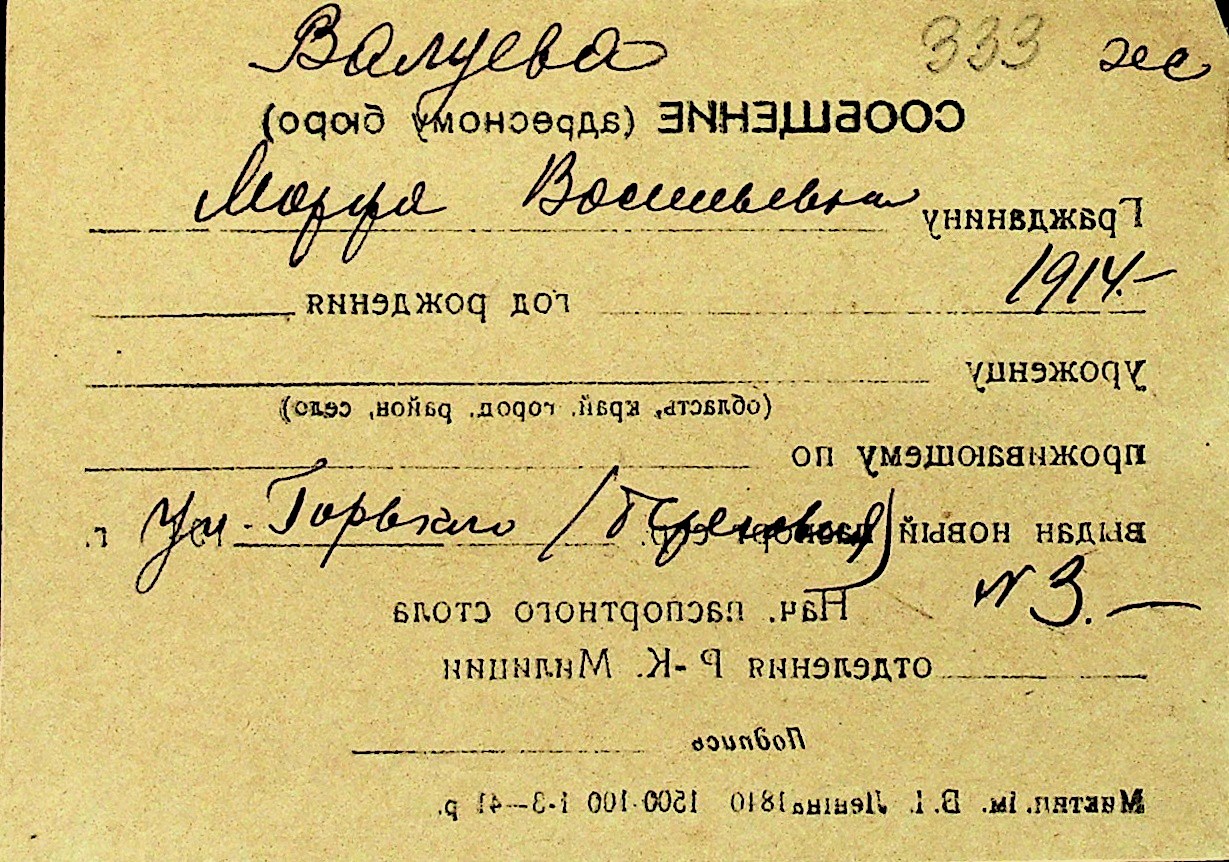 Валуева 333 же
СООБЩЕНИЕ (адресному бюро)
Гражданину Марфа Васильевна
1914.—
год рождения
уроженцу
(область, край, город, район, село)
проживающему по
Ул. Горького
выдан новый паспорт г.
N 3. —
Нач. паспортного стола
отделения Р-К. Милиции
Подпись
ім. В. І. Леніна 1810 1500-100 1-3-41 р.